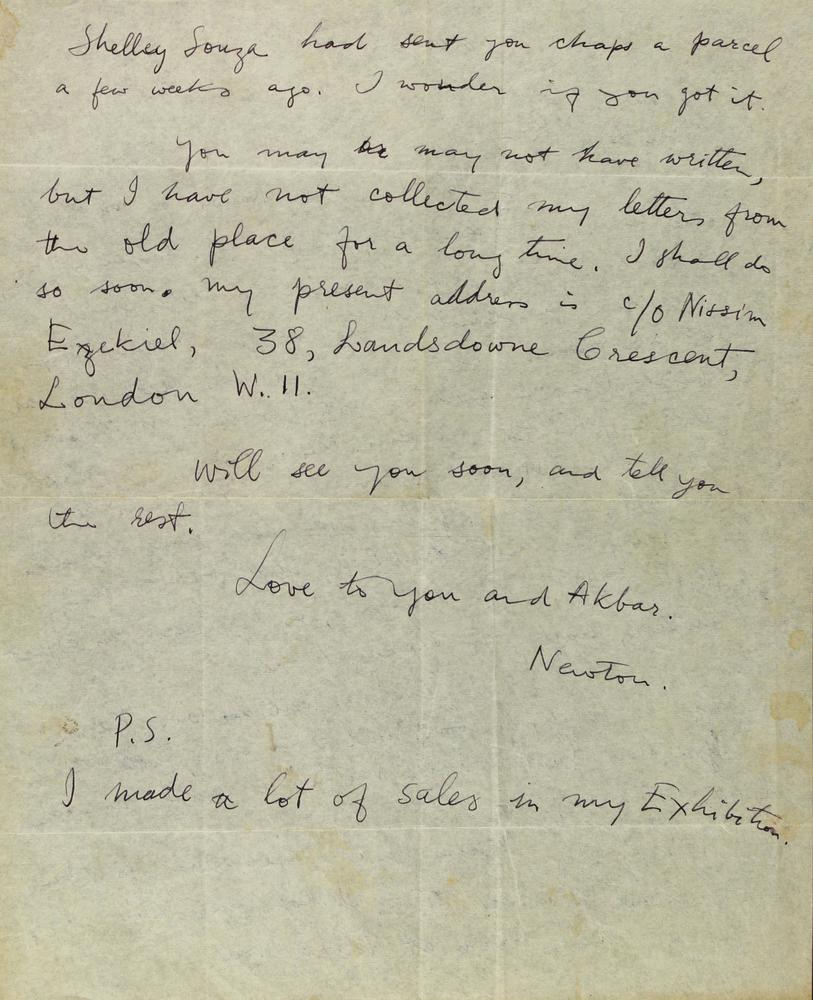 Shelley Souza had sent you chaps a parcel
a few weeks ago. I wonder if you got it.
You may or may not have written,
but I have not collected my letters from
the old place for a long time. I shall do
so soon. My present address is c/o Nissim
Ezekiel, 38, Landsdowne Crescent,
London W. 11.
Will see you soon, and tell you
the rest.
Love to you and Akbar.
Newton.
P.S.
I made a lot of sales in my Exhibition.